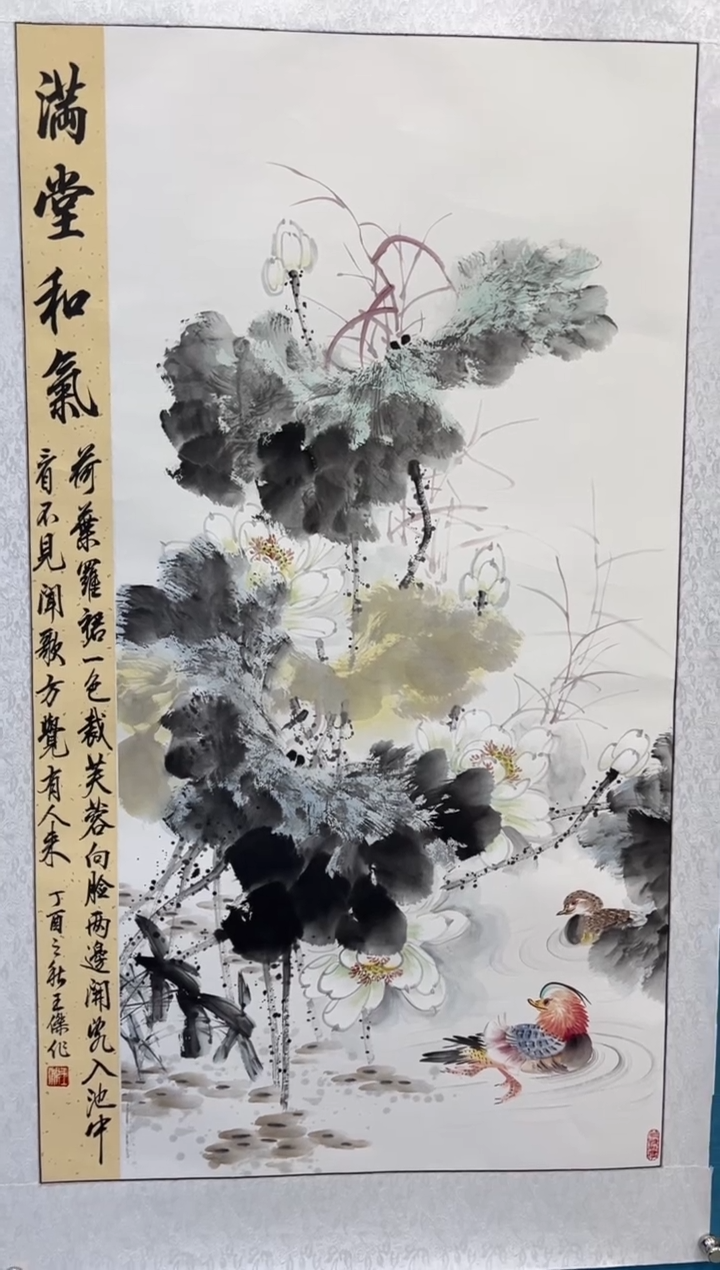 満堂和氣
荷葉羅裙一色裁芙蓉向臉兩邊開亂入池中
看不見聞歌方覺有人来
丁酉之秋王傑作